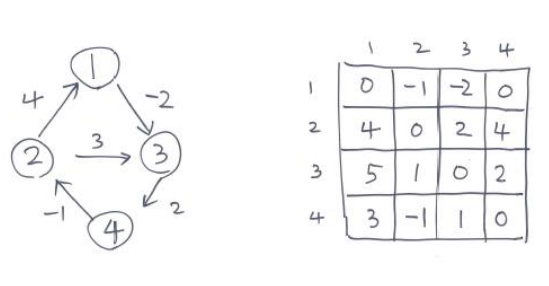 1
4
-2
2
3
3
-1
2
4
1 2 3 4
1 0 -1 -2 0
2 4 0 2 4
3 5 1 0 2
4 3 -1 1 0